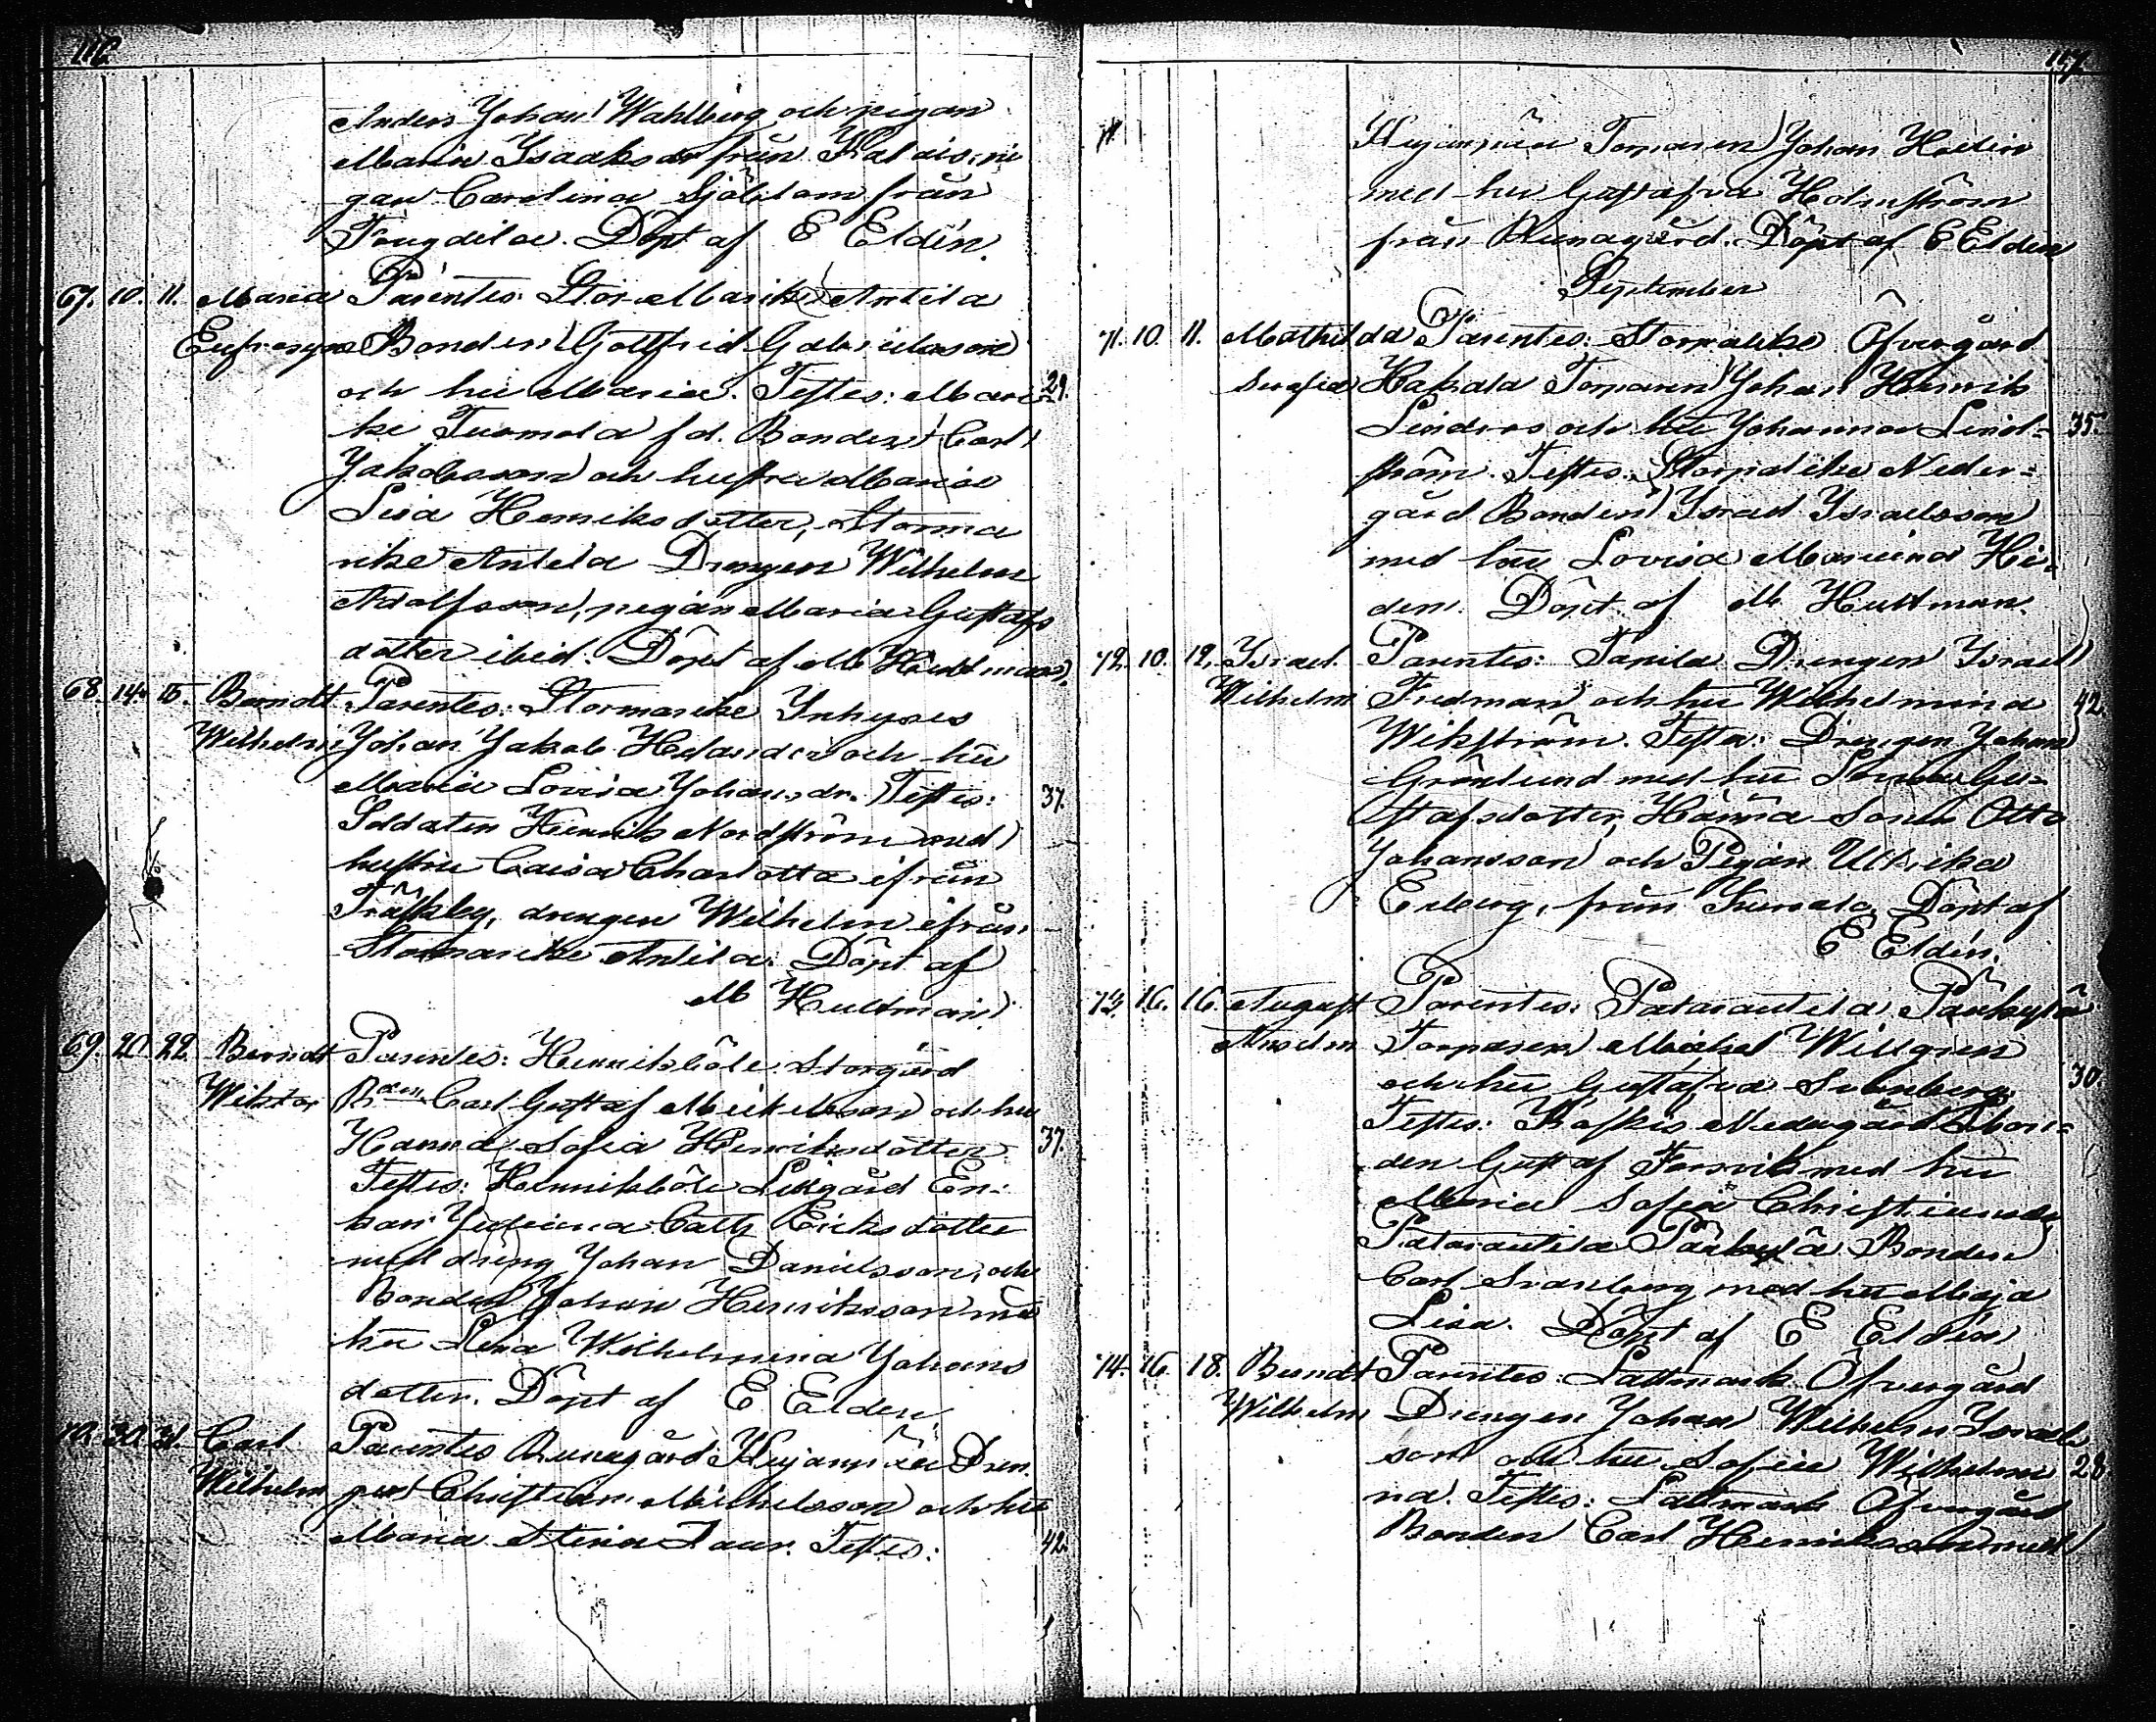 116.
Anders Johan Wahlberg och pigan
Maria Isaaksdr från Kalais, pi
gan Carolina Sjöblom från
Fougdila. Döpt af E Eldin.
67. 10. 11. Maria Parentes: Stormarike Antila
Eufrosyne Bonden Gottfrid Gabrielsson
och hu Maria. Testes: Mari- 29.
ke Tuomola fd. Bonden Carl
Jakobsson och hustru Maria
Lisa Henriksdotter, Storma
rike Antila Drengen Wilhelm
Adolfsson, pigan Maria Gustafs
dotter ibid. Döpt af M Hultman.
68. 14. 15. Berndt Parentes: Stormarike Inhyses
Wilhelm Johan Jakob Helander och hu
Maria Lovisa Johansdr. Testes: 37.
Soldaten Henrik Nordström med
hustru Caisa Charlotta ifrån
Träskby, drengen Wilhelm ifrån
Stormarike Antila. Döpt af
M Hultman.
69. 20. 22. Berndt Parentes: Henriksböle Storgård
Wiktor Bden Carl Gustaf Mickelsson och hu
Hanna Sofia Henriksdotter 37.
Testes: Henriksböle Lillgård En-
kan Juliana Cath Eriksdotter
med dreng Johan Danielsson, och
Bonden Johan Henriksson med
hu Lena Wilhelmina Johans
dotter. Döpt af E Eldin.
70. 30. 31. Carl Parentes Runagård Kujanpää Dren
Wilhelm gen Christian Mickelsson och hu
Maria Stina Laur. Testes: 42.
117.
Kujanpää Torparen Johan Hedin
med hu Gustafva Holmström
från Runagård. Döpt af E Eldin
September
71. 10. 11. Mathilda Parentes: Storpalike Öfvergård
Serafia Hakala Torparen Johan Henrik
Lindroos och hu Johanna Lind- 35.
ström. Testes: Storpalike Neder-
gård Bonden Israel Israelsson
med hu Lovisa Mariana Hei-
den. Döpt af M Hultman.
72. 10. 12. Israel Parentes: Tanila Drengen Israel
Wilhelm Fredman och hu Wilhelmina 42.
Wikström. Testes: Drengen Johan
Grönlund med hu Gu-
stafsdotter, Sonen Otto
Johansson och Pigan Ulrika
Erberg, från Döpt af
E Eldin.
73. 16. 16. August Parentes: Patarautila Pänkylä
Anselm Torparen Mickel Willgren
och hu Gustafva Svanberg. 30.
Testes: Nedergård Bon-
den Gustaf Forsvik med hu
Maria Sofia Christiansdr
Patarautila Pänkylä Bonden
Carl Svanberg med hu Maja
Lisa. Döpt af E Eldin
74. 16. 18. Berndt Parentes: Lattmark Öfvergård
Wilhelm Drengen Johan Wilhelm Israels
son och hu Sofia Wilhelmi 28
na. Testes: Lattmark Öfvergård
Bonden Carl Henriksson med